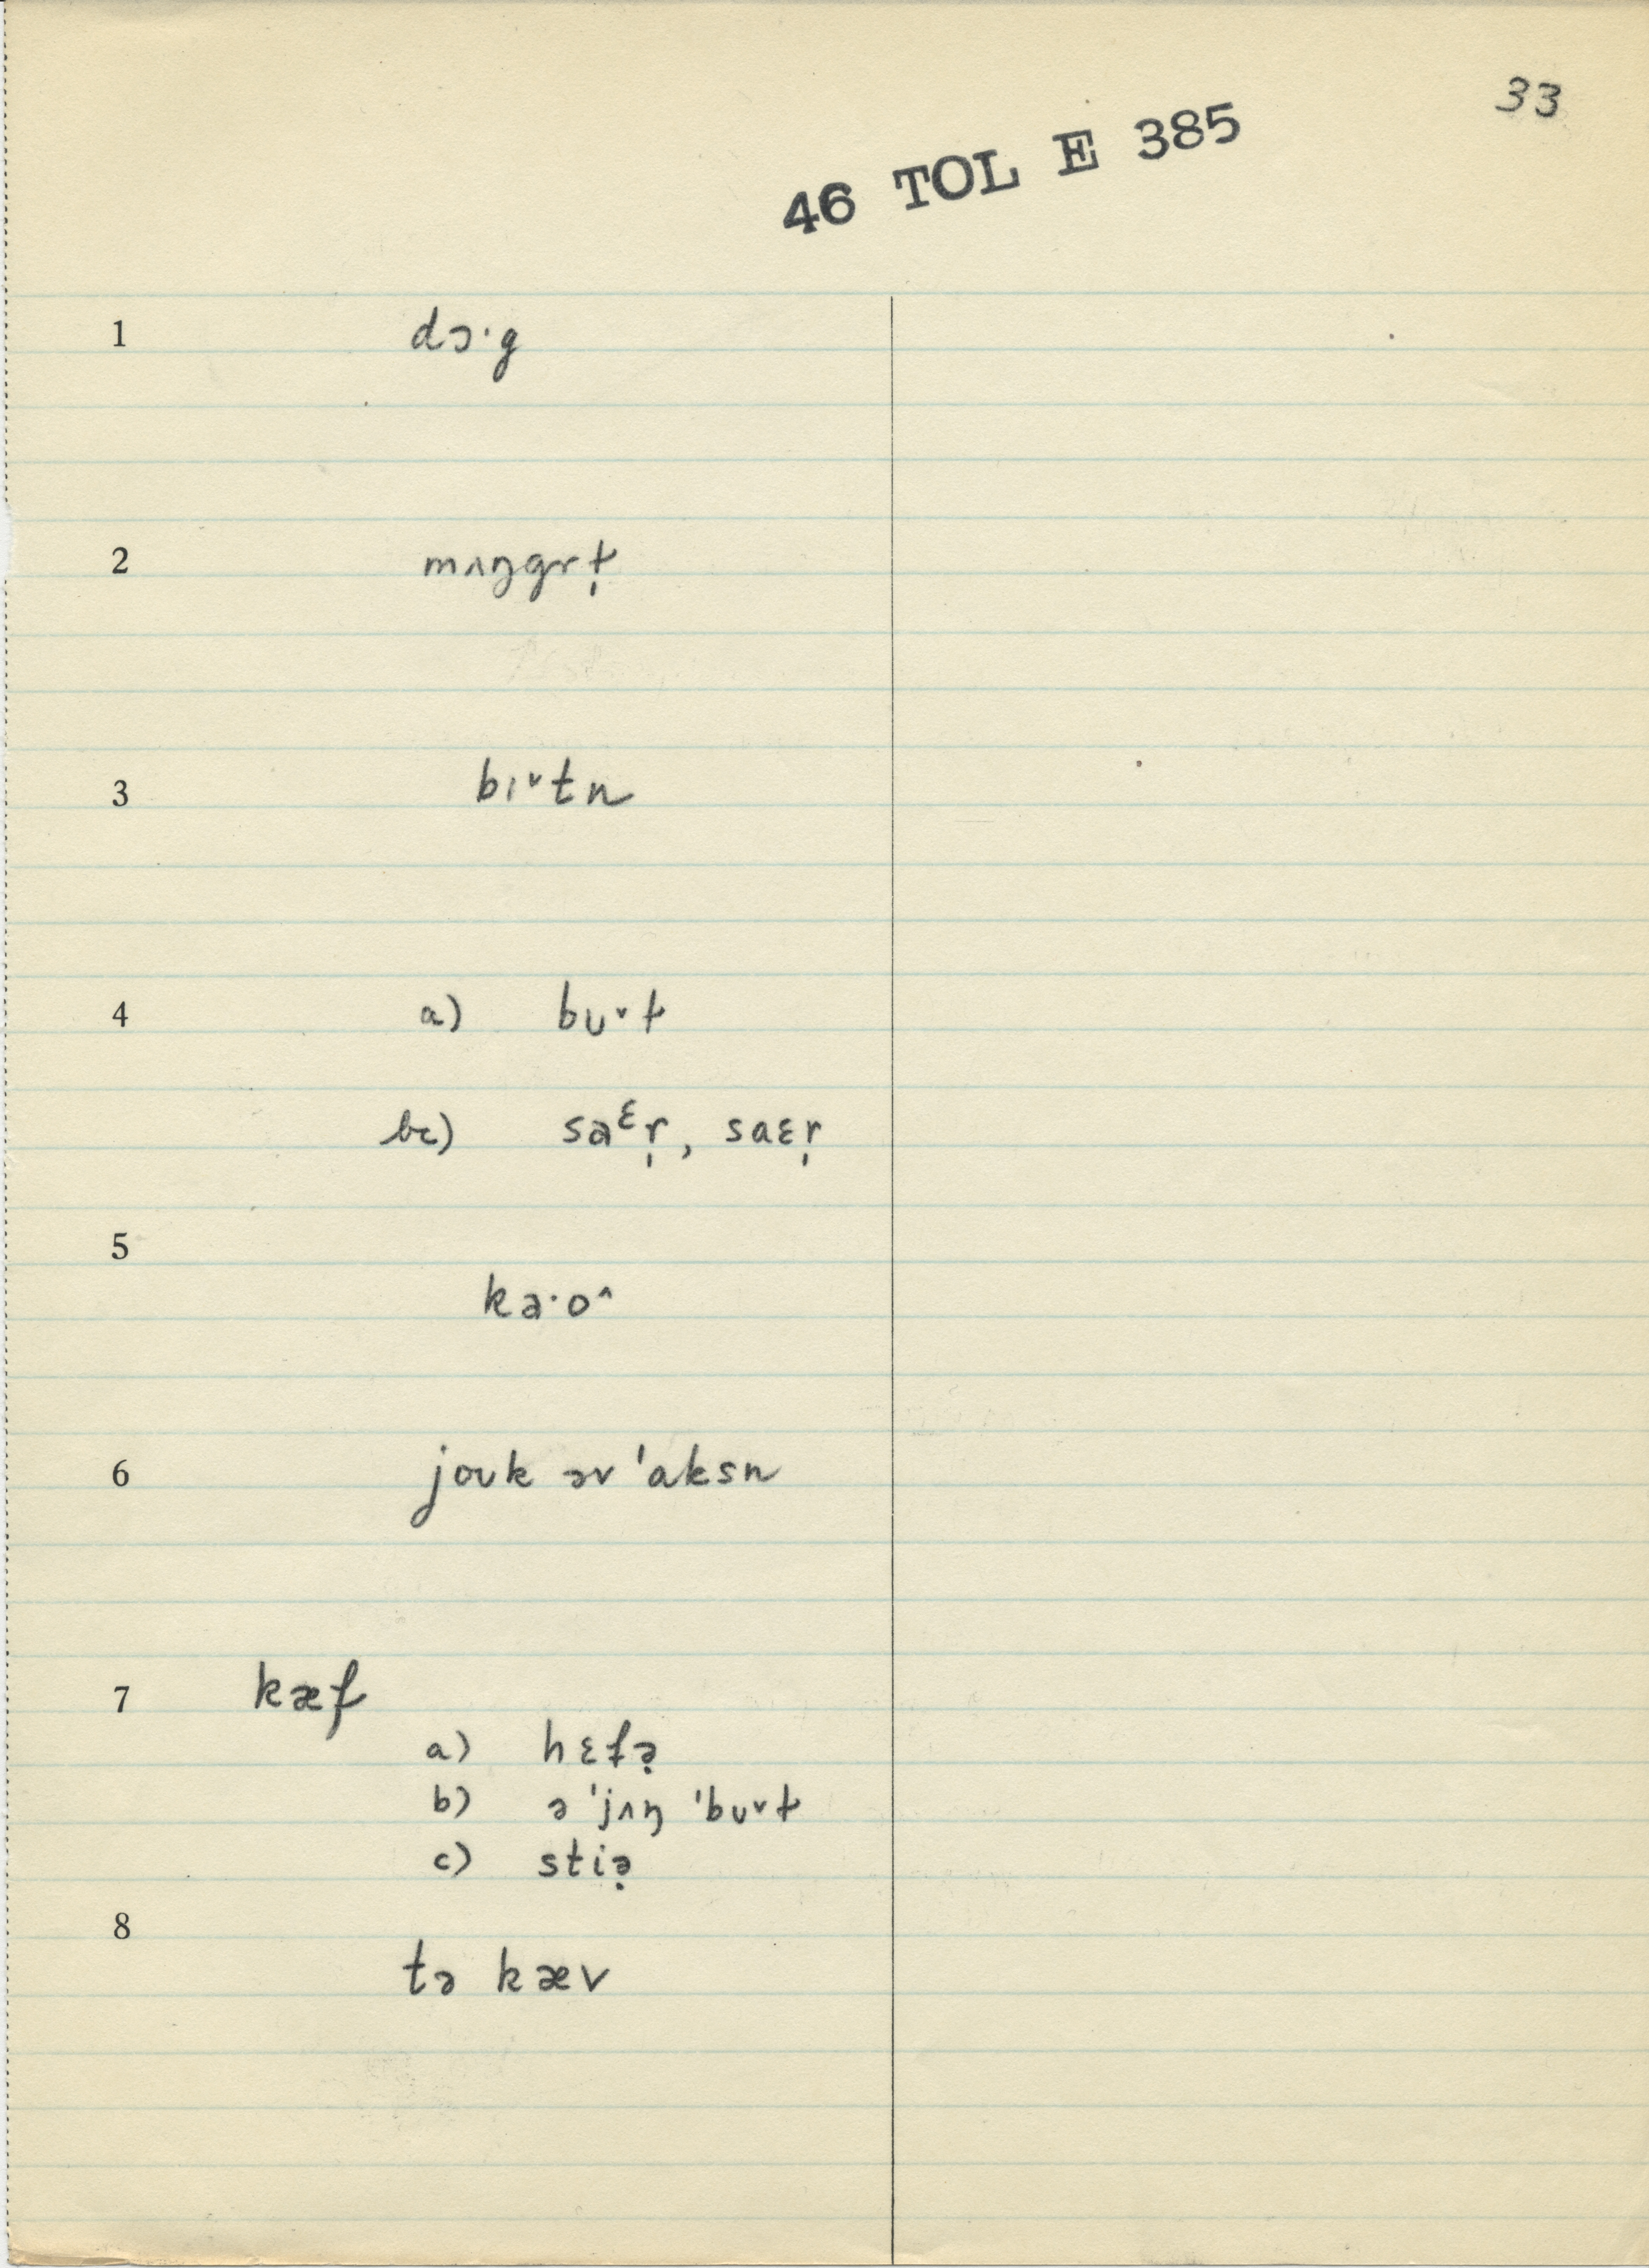 33
46 TOL E 385
1 dɔ·g
2 mʌŋgrt̩
3 bɪ˅tn
4 a) bʊ˅t
bc) sa ᵋr̩, saɛr̩
5 ka·o^
6 joʊk əv 'aksn
7 kæf
a) hɛfə̣
b) ə 'jʌŋ 'bʊ˅t
c) stiə̣
8 tə kæv